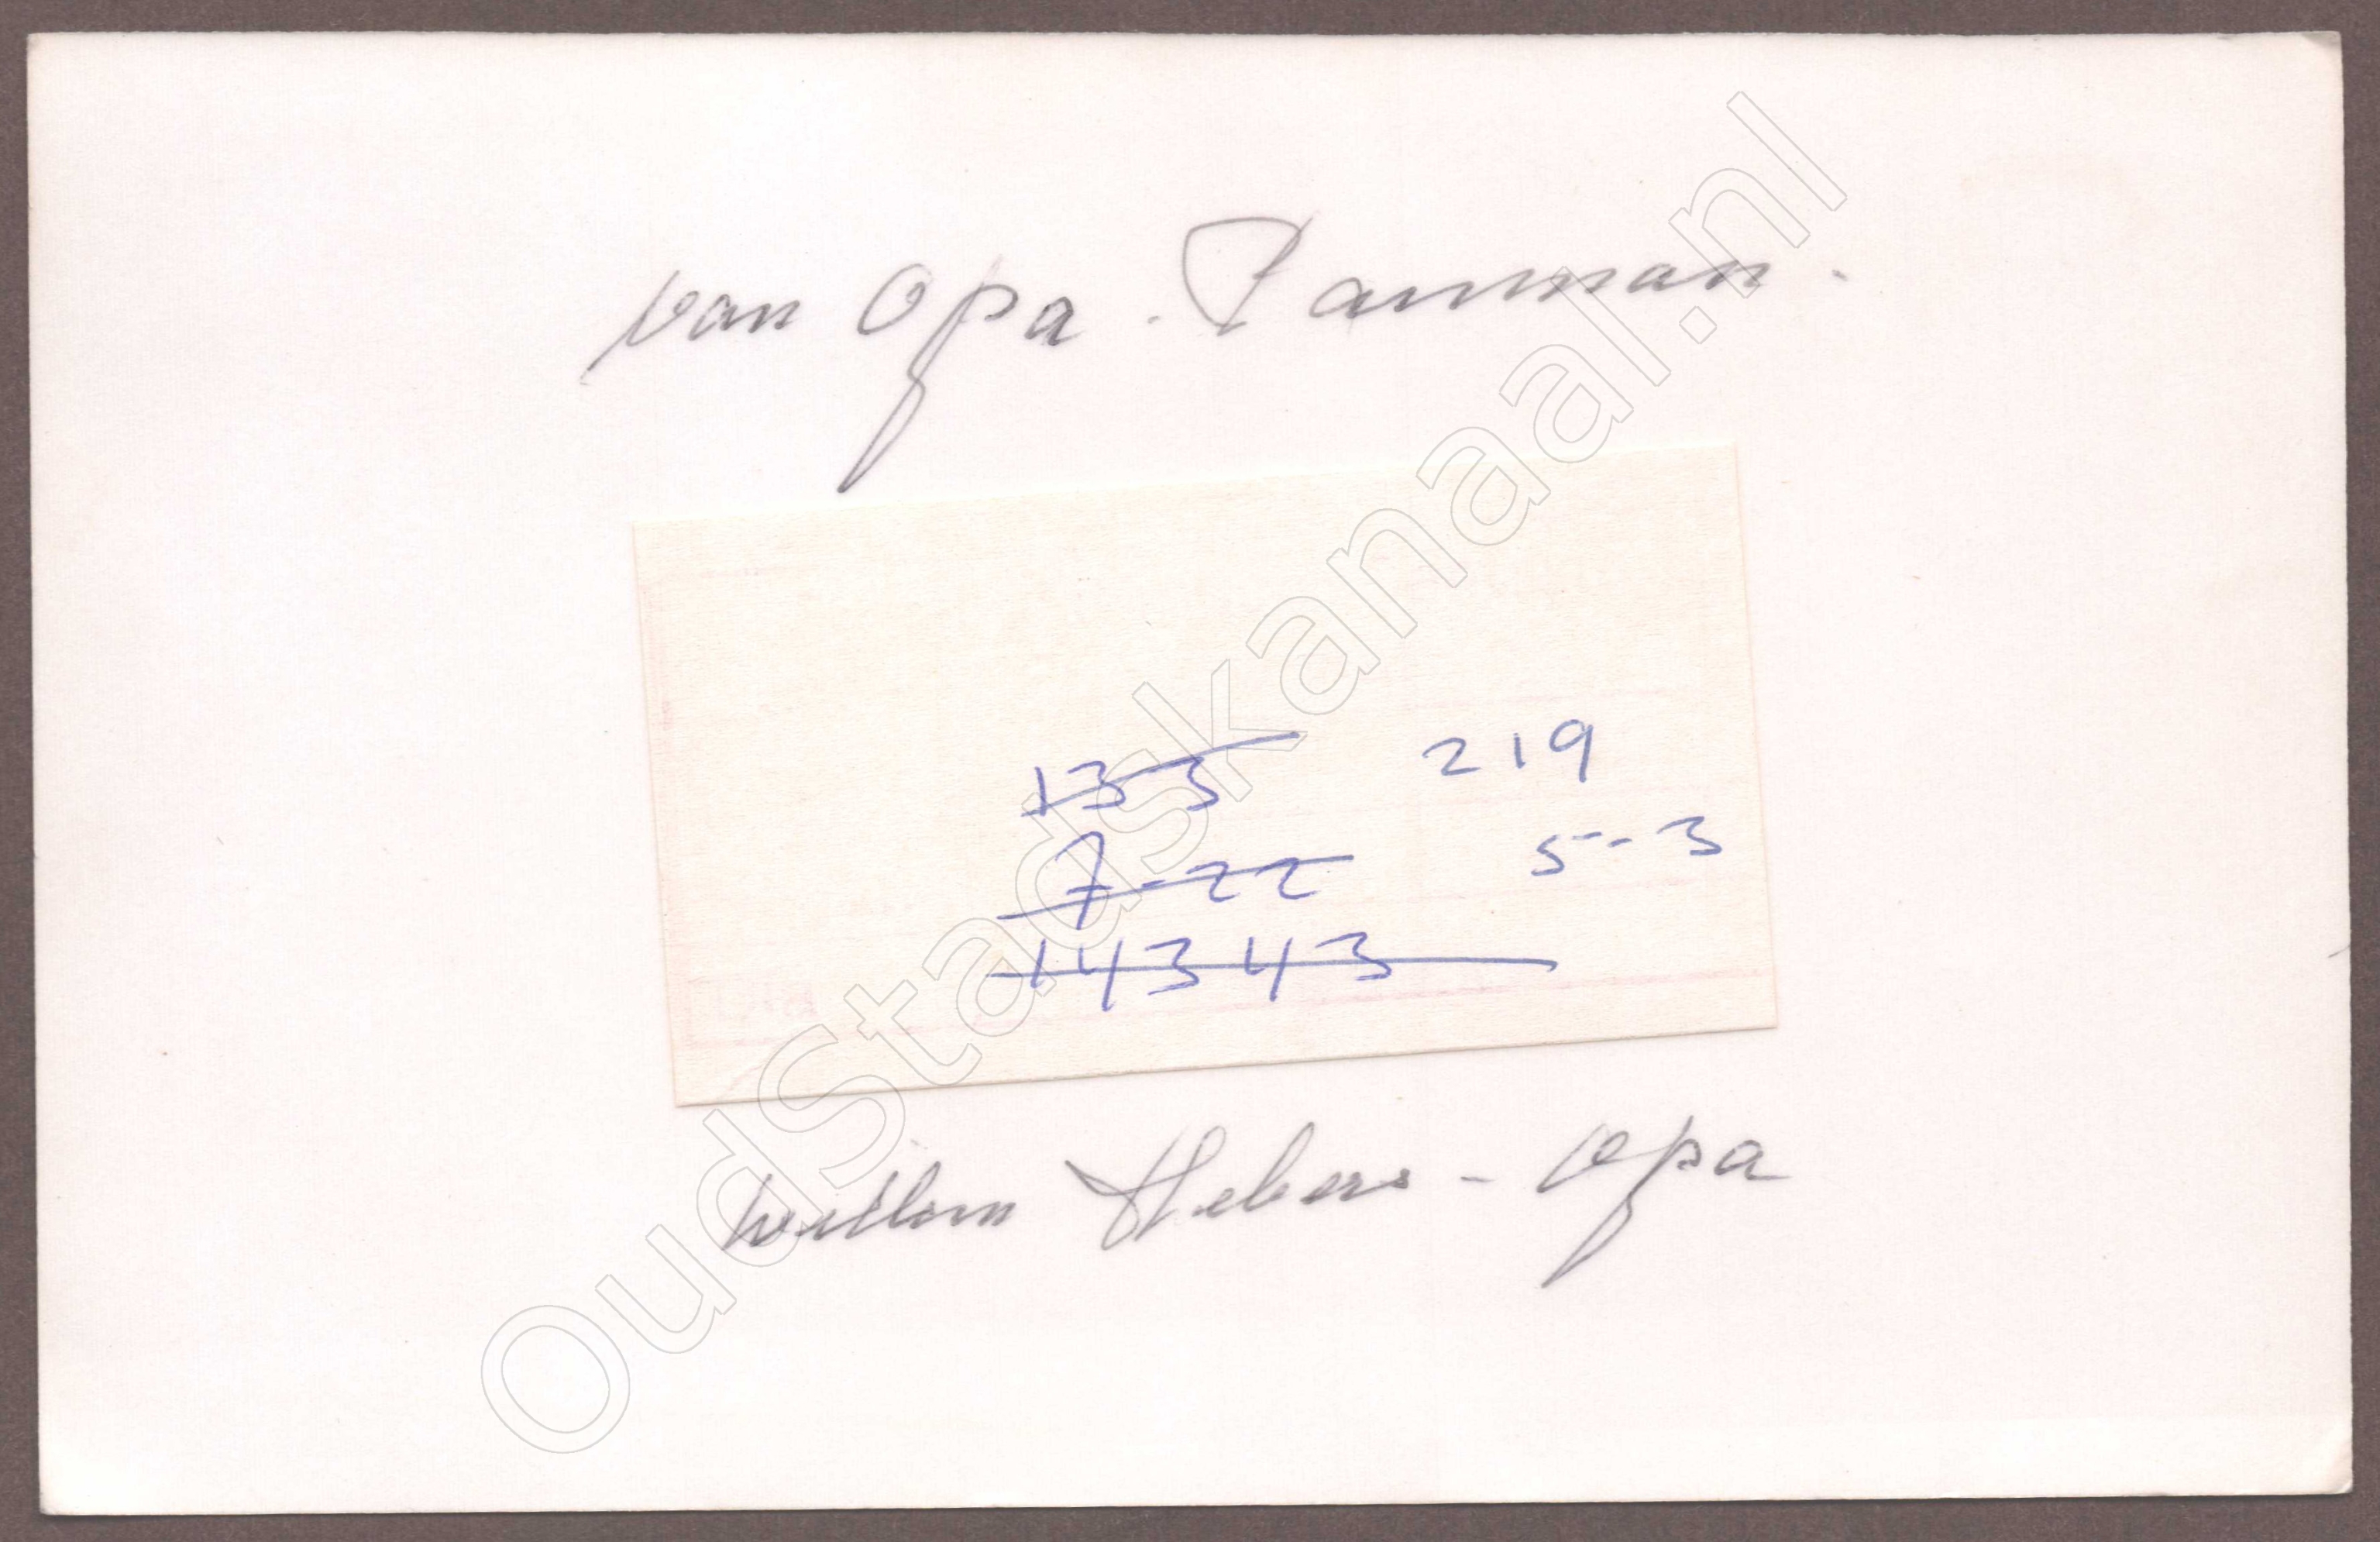 van Opa. Panman.
133 219
7-22 5--3
14343
Willem Hebers - Opa
OudStadskanaal.nl